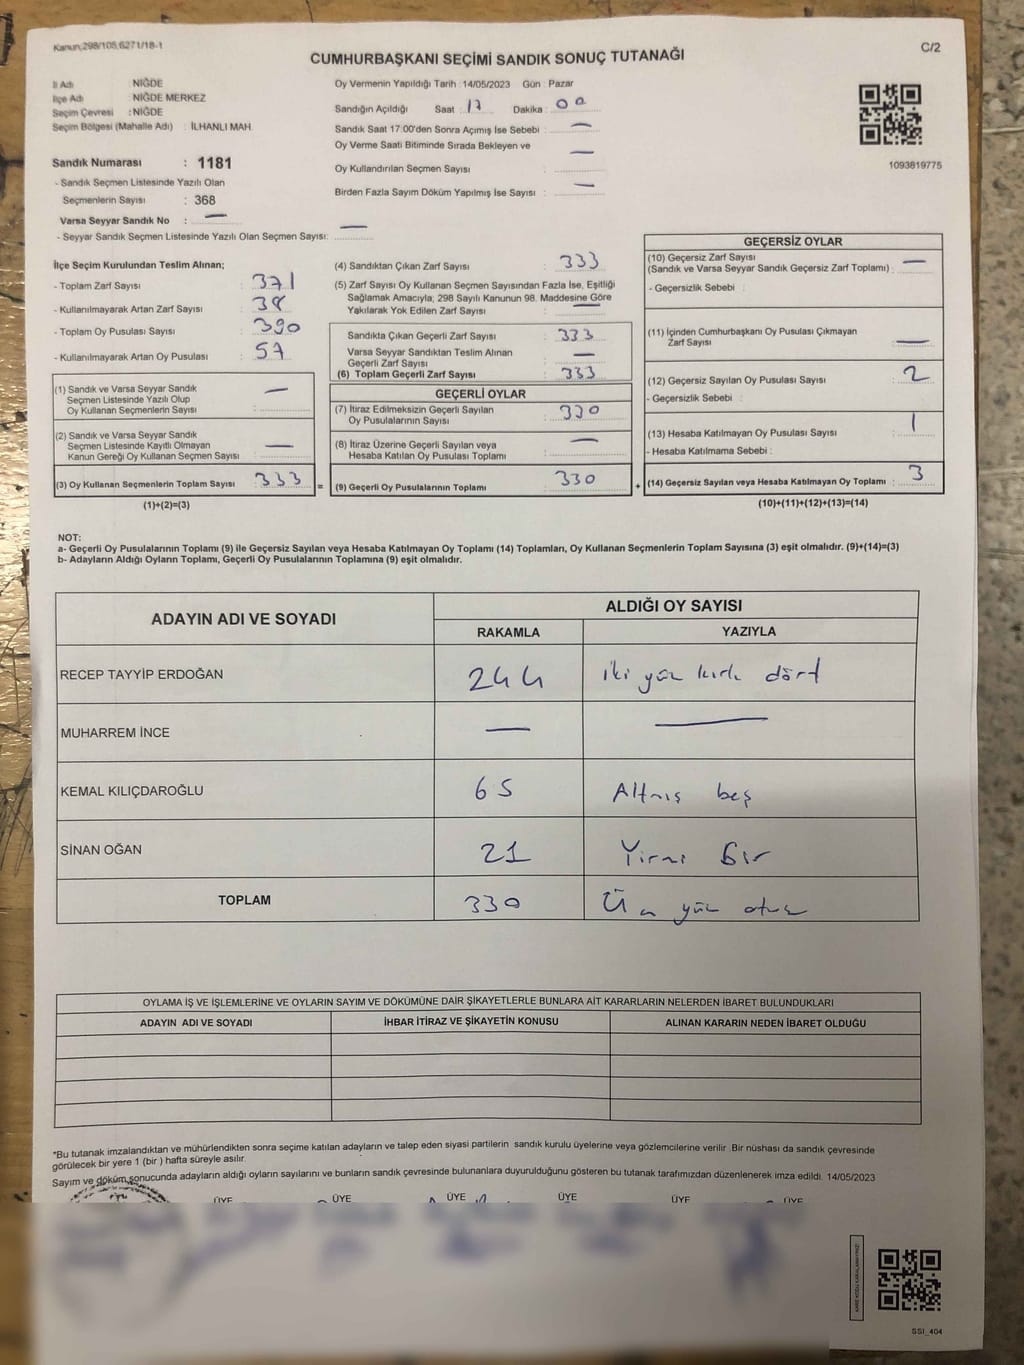 Kanun,298/105,6271/18-1
C/2
CUMHURBAŞKANI SEÇİMİ SANDIK SONUÇ TUTANAĞI
İl Adı : NİĞDE
İlçe Adı : NİĞDE MERKEZ
Seçim Çevresi : NİĞDE
Seçim Bölgesi (Mahalle Adı) : İLHANLI MAH.
Sandık Numarası : 1181
- Sandık Seçmen Listesinde Yazılı Olan
Seçmenlerin Sayısı : 368
Varsa Seyyar Sandık No : —
- Seyyar Sandık Seçmen Listesinde Yazılı Olan Seçmen Sayısı: —
Oy Vermenin Yapıldığı Tarih : 14/05/2023 Gün : Pazar
Sandığın Açıldığı Saat : 17 Dakika : 00
Sandık Saat 17:00'den Sonra Açımış İse Sebebi : —
Oy Verme Saati Bitiminde Sırada Bekleyen ve
Oy Kullandırılan Seçmen Sayısı : —
Birden Fazla Sayım Döküm Yapılmış İse Sayısı : —
1093819775
İlçe Seçim Kurulundan Teslim Alınan;
- Toplam Zarf Sayısı : 371
- Kullanılmayarak Artan Zarf Sayısı : 38
- Toplam Oy Pusulası Sayısı : 390
- Kullanılmayarak Artan Oy Pusulası : 57
(1) Sandık ve Varsa Seyyar Sandık
Seçmen Listesinde Yazılı Olup
Oy Kullanan Seçmenlerin Sayısı : —
(2) Sandık ve Varsa Seyyar Sandık
Seçmen Listesinde Kayıtlı Olmayan
Kanun Gereği Oy Kullanan Seçmen Sayısı : —
(3) Oy Kullanan Seçmenlerin Toplam Sayısı : 333
(1)+(2)=(3)
=
(4) Sandıktan Çıkan Zarf Sayısı : 333
(5) Zarf Sayısı Oy Kullanan Seçmen Sayısından Fazla İse, Eşitliği
Sağlamak Amacıyla; 298 Sayılı Kanunun 98. Maddesine Göre
Yakılarak Yok Edilen Zarf Sayısı : —
Sandıkta Çıkan Geçerli Zarf Sayısı : 333
Varsa Seyyar Sandıktan Teslim Alınan
Geçerli Zarf Sayısı : —
(6) Toplam Geçerli Zarf Sayısı : 333
GEÇERLİ OYLAR
(7) İtiraz Edilmeksizin Geçerli Sayılan
Oy Pusulalarının Sayısı : 330
(8) İtiraz Üzerine Geçerli Sayılan veya
Hesaba Katılan Oy Pusulası Toplamı : —
(9) Geçerli Oy Pusulalarının Toplamı : 330
+
GEÇERSİZ OYLAR
(10) Geçersiz Zarf Sayısı
(Sandık ve Varsa Seyyar Sandık Geçersiz Zarf Toplamı) : —
- Geçersizlik Sebebi :
(11) İçinden Cumhurbaşkanı Oy Pusulası Çıkmayan
Zarf Sayısı : —
(12) Geçersiz Sayılan Oy Pusulası Sayısı : 2
- Geçersizlik Sebebi :
(13) Hesaba Katılmayan Oy Pusulası Sayısı : 1
- Hesaba Katılmama Sebebi :
(14) Geçersiz Sayılan veya Hesaba Katılmayan Oy Toplamı : 3
(10)+(11)+(12)+(13)=(14)
NOT:
a- Geçerli Oy Pusulalarının Toplamı (9) ile Geçersiz Sayılan veya Hesaba Katılmayan Oy Toplamı (14) Toplamları, Oy Kullanan Seçmenlerin Toplam Sayısına (3) eşit olmalıdır. (9)+(14)=(3)
b- Adayların Aldığı Oyların Toplamı, Geçerli Oy Pusulalarının Toplamına (9) eşit olmalıdır.
ADAYIN ADI VE SOYADI ALDIĞI OY SAYISI
RAKAMLA YAZIYLA
RECEP TAYYİP ERDOĞAN 244 iki yüz kırk dört
MUHARREM İNCE — —
KEMAL KILIÇDAROĞLU 65 Altmış beş
SİNAN OĞAN 21 Yirmi bir
TOPLAM 330 Üç yüz otuz
OYLAMA İŞ VE İŞLEMLERİNE VE OYLARIN SAYIM VE DÖKÜMÜNE DAİR ŞİKAYETLERLE BUNLARA AİT KARARLARIN NELERDEN İBARET BULUNDUKLARI
ADAYIN ADI VE SOYADI İHBAR İTİRAZ VE ŞİKAYETİN KONUSU ALINAN KARARIN NEDEN İBARET OLDUĞU
*Bu tutanak imzalandıktan ve mühürlendikten sonra seçime katılan adayların ve talep eden siyasi partilerin sandık kurulu üyelerine veya gözlemcilerine verilir. Bir nüshası da sandık çevresinde
görülecek bir yere 1 (bir ) hafta süreyle asılır.
Sayım ve döküm sonucunda adayların aldığı oyların sayılarını ve bunların sandık çevresinde bulunanlara duyurulduğunu gösteren bu tutanak tarafımızdan düzenlenerek imza edildi. 14/05/2023
ÜYE ÜYE ÜYE ÜYE ÜYE ÜYE
SSI_404